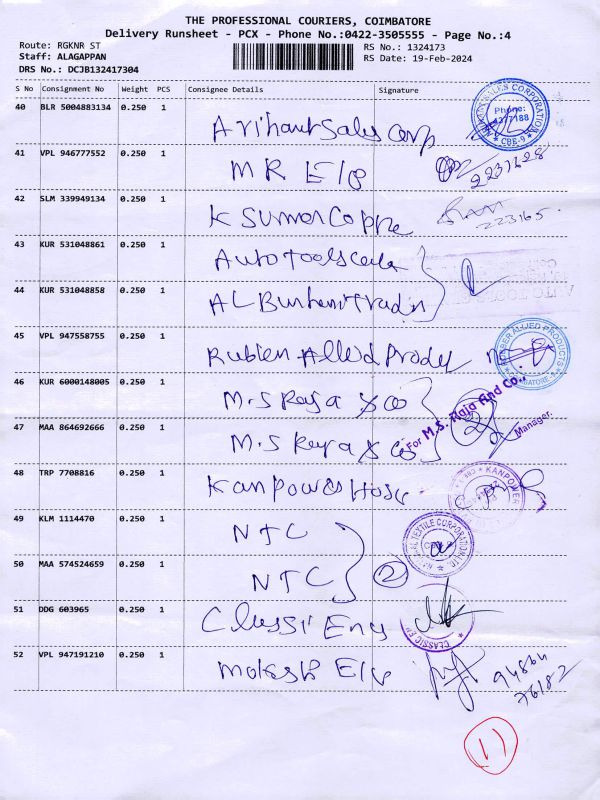 THE PROFESSIONAL COURIERS, COIMBATORE
Delivery Runsheet - PCX - Phone No.:0422-3505555 - Page No.:4
Route: RGKNR ST
RS No.: 1324173
Staff: ALAGAPPAN
RS Date: 19-Feb-2024
DRS No.: DCJB132417304
S No Consignment No Weight PCS Consignee Details Signature
40 BLR 5004883134 0.250 1 Arihant Sales Corp
SALES CORPORATION Phone: CBE-9
41 VPL 946777552 0.250 1 MR Ele
2231628
42 SLM 339949134 0.250 1 K Sumer Coppre
223165
43 KUR 531048861 0.250 1 Auto Tools
44 KUR 531048858 0.250 1 AL Burhani Tradn
45 VPL 947558755 0.250 1 Rubien Allied Prodel
BER ALLIED PRODUCTS
46 KUR 6000148005 0.250 1 M.S Raja & co
For M.S. Raja And Co.,
Manager.
47 MAA 864692666 0.250 1 M.S Raja & co
48 TRP 7708816 0.250 1 Kanpower Hose
KANPOWER
49 KLM 1114470 0.250 1 NTC
TEXTILE CORPORATION LTD.
50 MAA 574524659 0.250 1 NTC 2
51 DDG 603965 0.250 1 Classi Eng
CLASSIC
52 VPL 947191210 0.250 1 Mokesh Ele
94864
76182
11